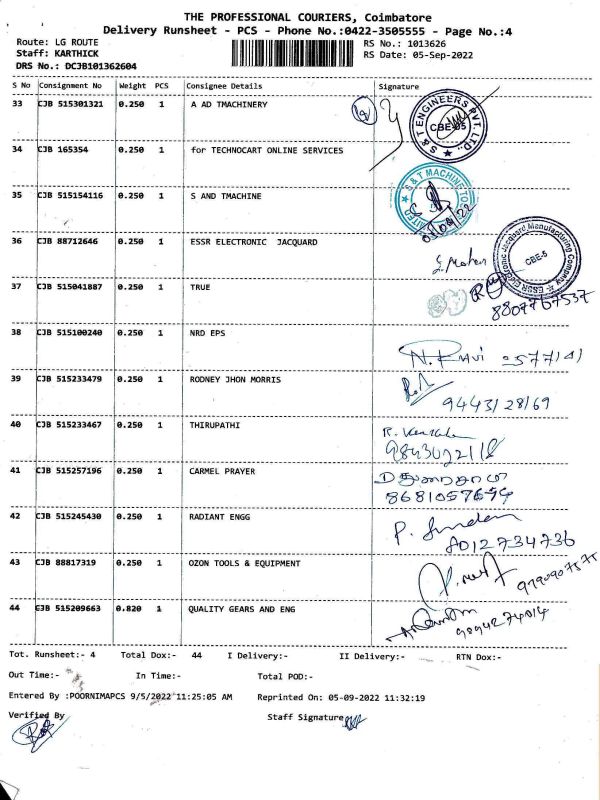 THE PROFESSIONAL COURIERS, Coimbatore
Delivery Runsheet - PCS - Phone No.:0422-3505555 - Page No.:4
Route: LG ROUTE
RS No.: 1013626
Staff: KARTHICK
RS Date: 05-Sep-2022
DRS No.: DCJB101362604
S No Consignment No Weight PCS Consignee Details Signature
33 CJB 515301321 0.250 1 A AD TMACHINERY
S & T ENGINEERS PVT. LTD. CBE-05
34 CJB 165354 0.250 1 for TECHNOCART ONLINE SERVICES
35 CJB 515154116 0.250 1 S AND TMACHINE
S & T MACHINE
36 CJB 88712646 0.250 1 ESSR ELECTRONIC JACQUARD
ESSR Electronic Jacquard Manufacturing Company CBE-5
37 CJB 515041887 0.250 1 TRUE
8807767537
38 CJB 515100240 0.250 1 NRD EPS
N. Ravi
39 CJB 515233479 0.250 1 RODNEY JHON MORRIS
9443128169
40 CJB 515233467 0.250 1 THIRUPATHI
41 CJB 515257196 0.250 1 CARMEL PRAYER
42 CJB 515245430 0.250 1 RADIANT ENGG
8012734736
43 CJB 88817319 0.250 1 OZON TOOLS & EQUIPMENT
44 CJB 515209663 0.820 1 QUALITY GEARS AND ENG
9894274014
Tot. Runsheet:- 4 Total Dox:- 44 I Delivery:- II Delivery:- RTN Dox:-
Out Time:- In Time:- Total POD:-
Entered By :POORNIMAPCS 9/5/2022 11:25:05 AM Reprinted On: 05-09-2022 11:32:19
Verified By Staff Signature